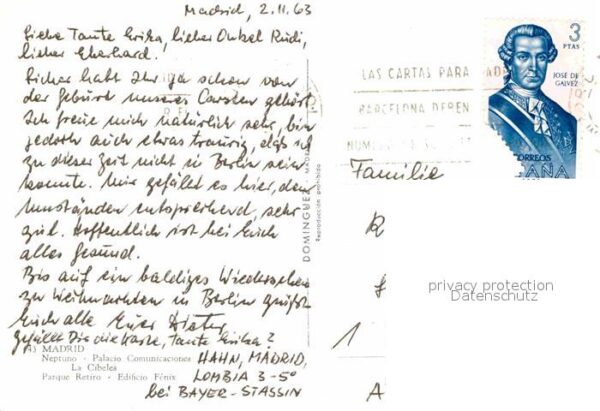 Madrid, 2.11.63
Liebe Tante Erika, lieber Onkel Rudi,
lieber Eberhard.
Sicher habt Ihr ja schon von
der Geburt unseres Carsten gehört
Ich freue mich natürlich sehr, bin
jedoch auch etwas traurig, daß ich
zu dieser Zeit nicht in Berlin sein
konnte. Mir gefällt es hier, den
Umständen entsprechend, sehr
gut. Hoffentlich ist bei Euch
alles gesund.
Bis auf ein baldiges Wiedersehen
zu Weihnachten in Berlin grüßt
Euch alle Euer Dieter
Gefällt Dir die Karte, Tante Erika?
MADRID
Neptuno - Palacio Comunicaciones
La Cibeles
Parque Retiro - Edificio Fénix
HAHN, MADRID,
LOMBIA 3-5°
bei BAYER-STASSIN
DOMINGUEZ - MADRID
Reproducción prohibida
LAS CARTAS PARA
BARCELONA DEBEN
3
PTAS
JOSÉ DE
GALVEZ
CORREOS
ESPAÑA
Familie
R
1
A
privacy protection
Datenschutz